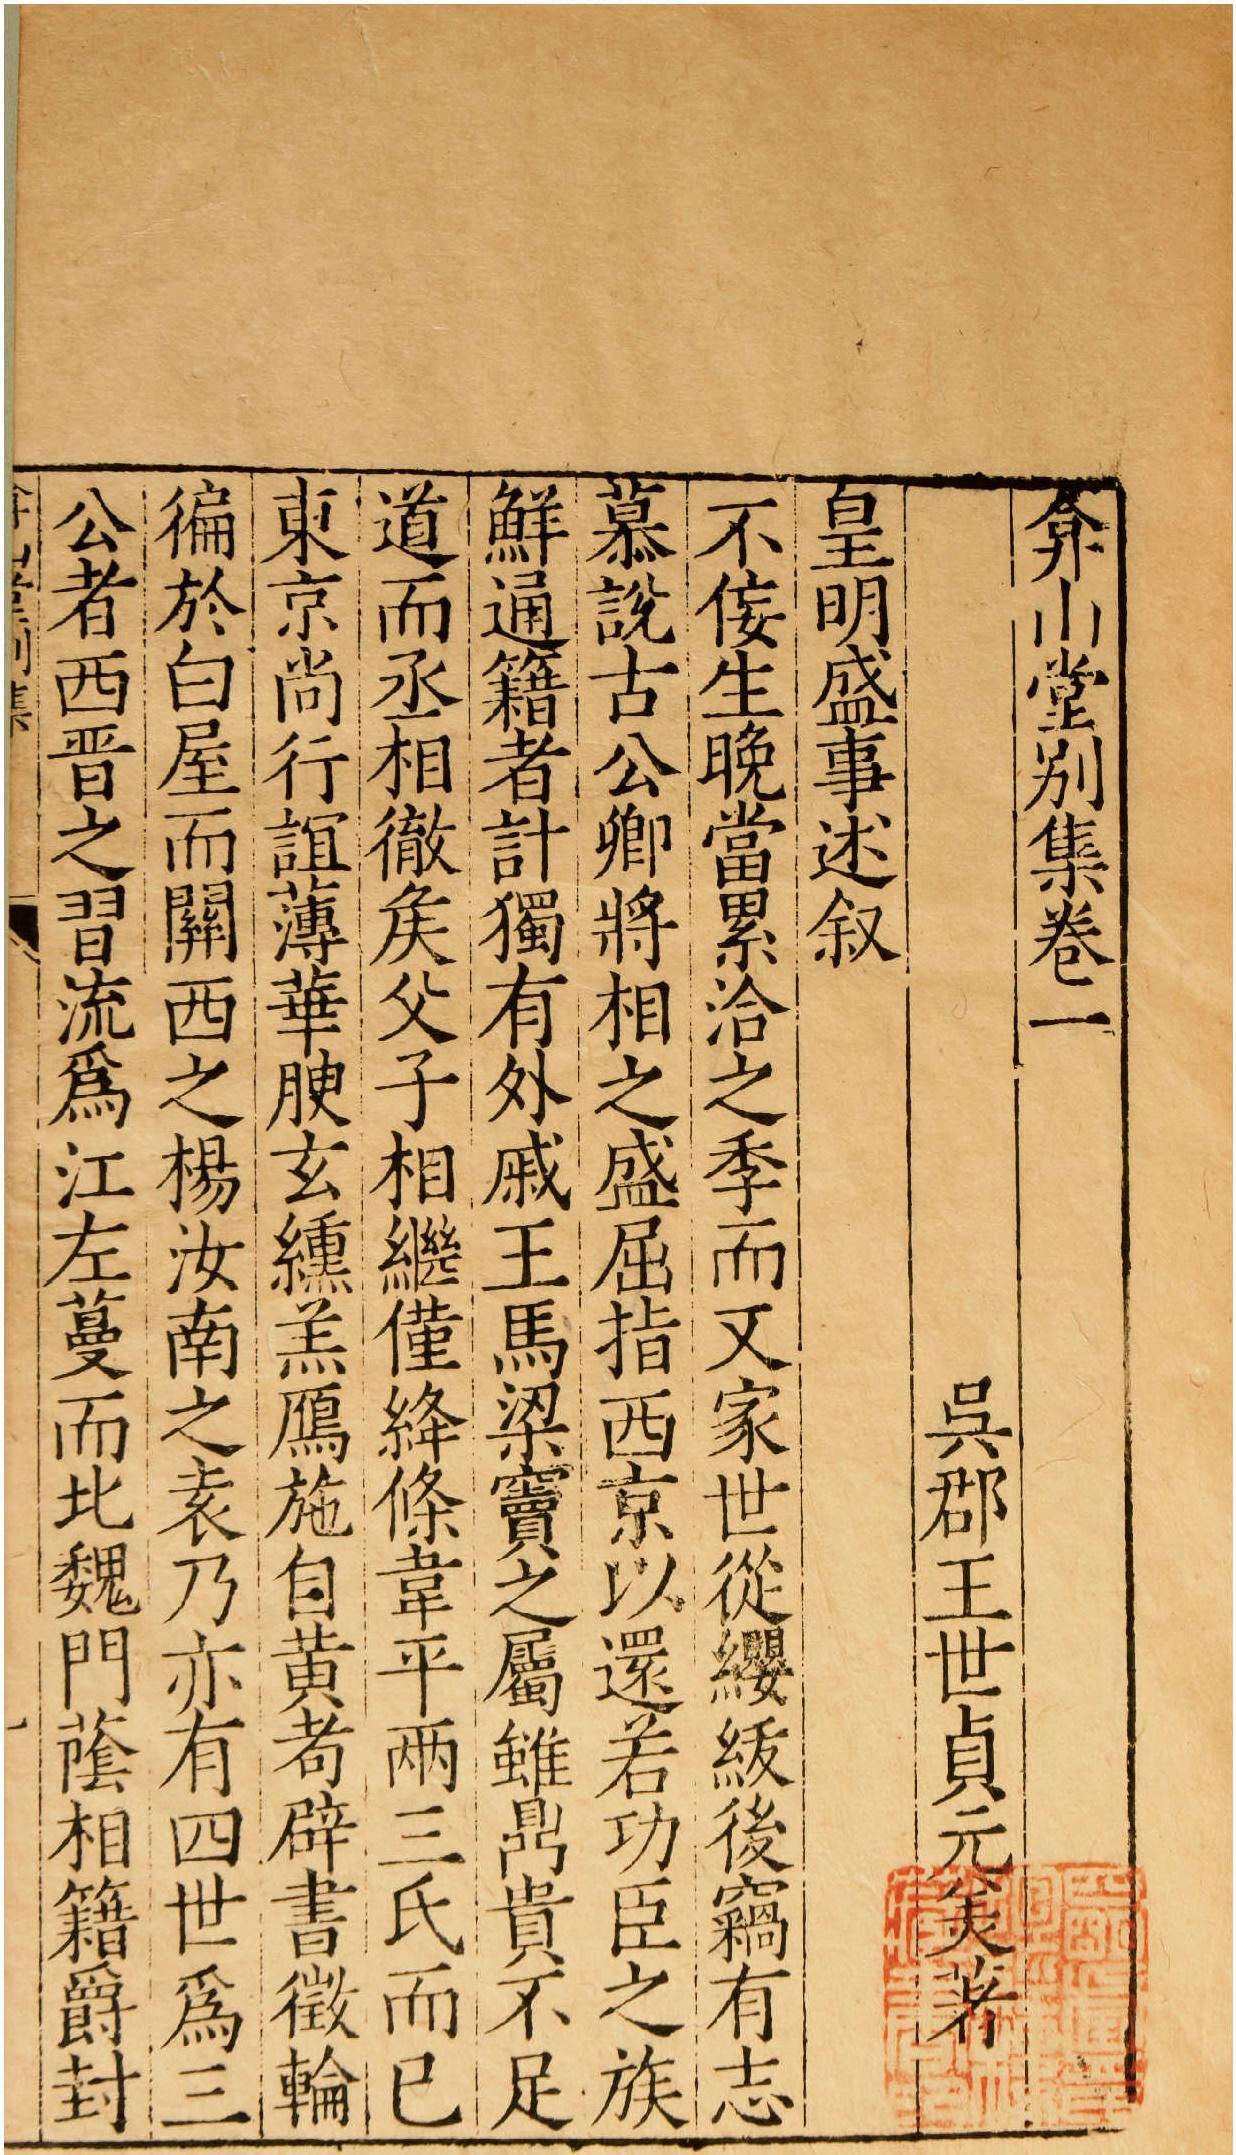 弇山堂别集卷一
吳郡王世貞元美著
皇明盛事述叙
不佞生晚當累洽之季而又家世從纓紱後竊有志
慕說古公卿將相之盛屈指西京以還若功臣之族
鮮通籍者計獨有外戚王馬梁竇之屬雖鼎貴不足
道而丞相徹矦父子相繼僅絳條韋平兩三氏而已
東京尚行誼薄華腴玄纁羔鴈施自黄耇辟書徵輪
徧於白屋而關西之楊汝南之袁乃亦有四世爲三
公者西晋之習流爲江左蔓而北魏門蔭相籍爵封